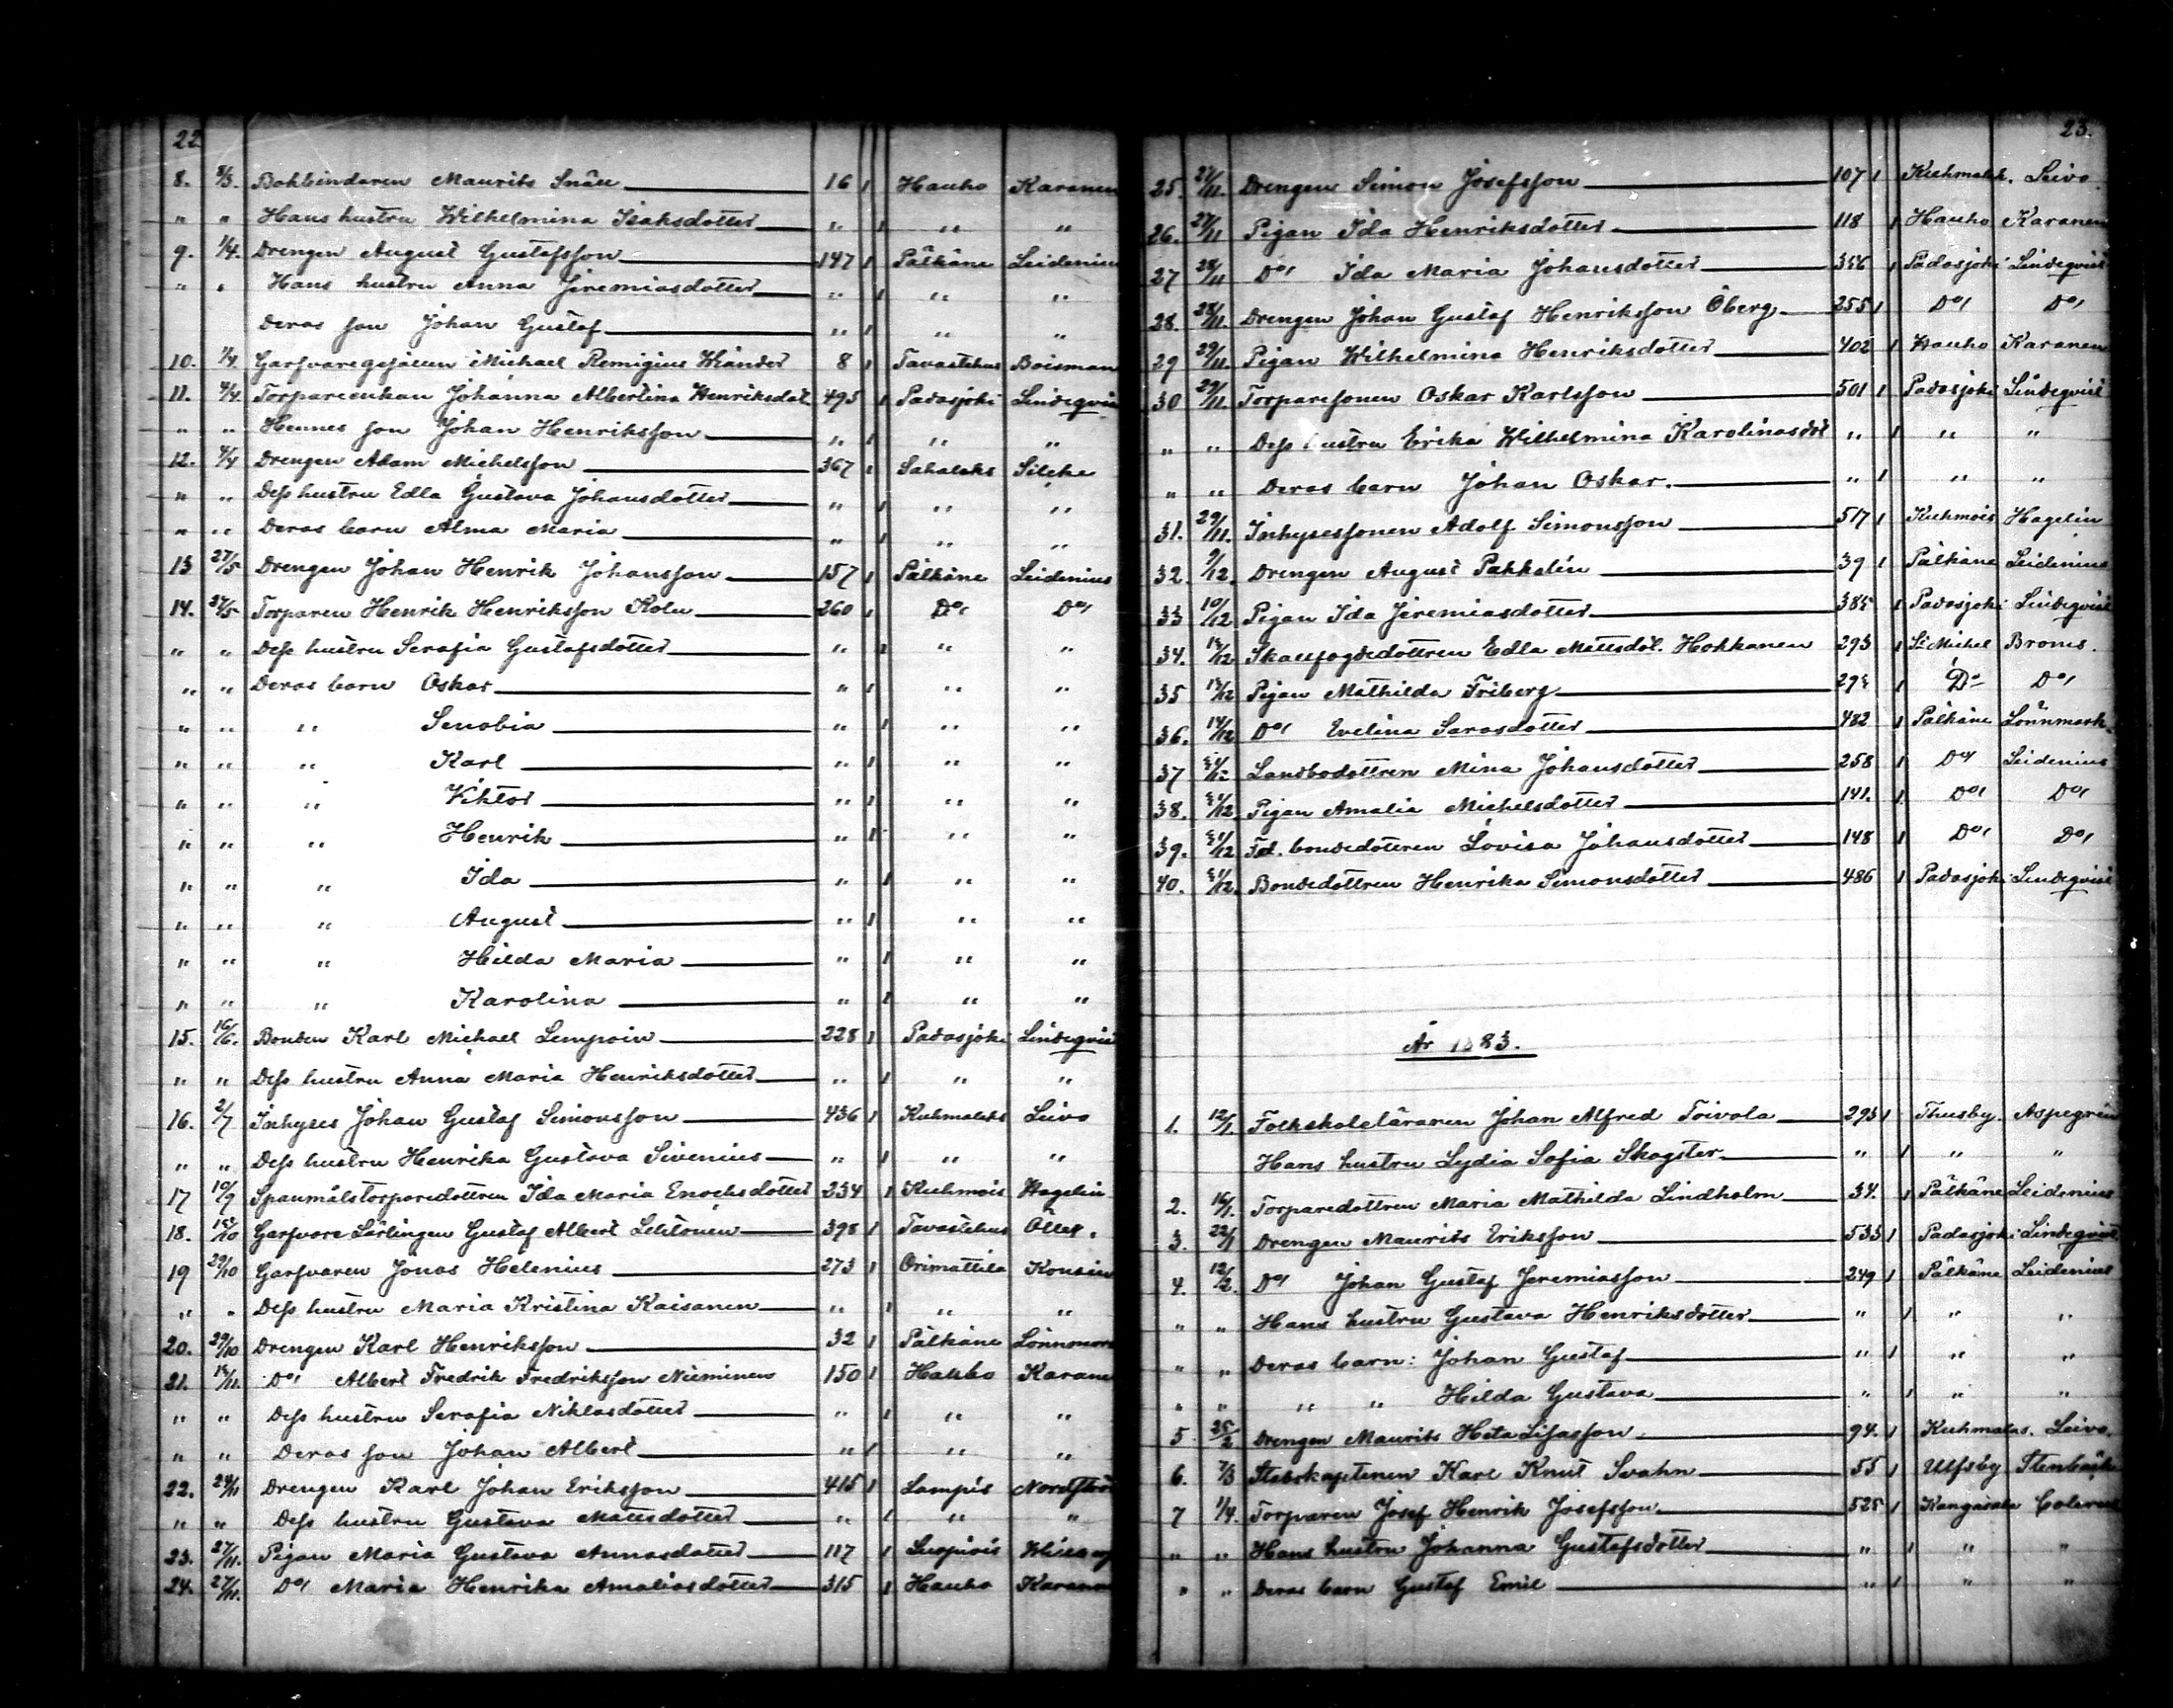 22
8. 8/3. Bokbindaren Maurits Snäll 16 1 Hauho Karanen
" " Hans hustru Wilhelmina Isaksdotter " 1 " "
9. 1/4. Drengen August Gustafsson 147 1 Pälkäne Leidenius
" " Hans hustru Anna Jeremiasdotter " 1 " "
Deras son Johan Gustaf " 1 " "
10. 1/4 Garfvaregesällen Michael Remigius Winder 8 1 Tavastehus Boisman
11. 4/4. Torpareenkan Johanna Albertina Henriksdot. 495 1 Padasjoki Lindeqvist
" " Hennes son Johan Henriksson " 1 " "
12. 4/4 Drengen Adam Michelsson 367 1 Sahalaks Silcke
" " Dess hustru Edla Gustava Johansdotter " 1 " "
" " Deras barn Alma Maria " 1 " "
13 27/5 Drengen Johan Henrik Johansson 157 1 Pälkäne Leidenius
14. 27/5 Torparen Henrik Henriksson Kolu 260 1 Do Do
" " Dess hustru Serafia Gustafsdotter " 1 " "
" " Deras barn Oskar " 1 " "
" " " Senobia " 1 " "
" " " Karl " 1 " "
" " " Viktor " 1 " "
" " " Henrik " 1 " "
" " " Ida " 1 " "
" " " August " 1 " "
" " " Hilda Maria " 1 " "
" " " Karolina " 1 " "
15. 16/6. Bonden Karl Michael Lempoin 228 1 Padasjoki Lindeqvist
" " Dess hustru Anna Maria Henriksdotter " 1 " "
16. 2/7 Inhyses Johan Gustaf Simonsson 436 1 Kuhmalaks Leivo
" " Dess hustru Henrika Gustava Sivenius " 1 " "
17 19/9 Spanmålstorparedottren Ida Maria Enochsdotter 234 1 Kuhmois Hagelin
18. /10 Garfvare Lärlingen Gustaf Albert Lehtonen 398 1 Tavastehus
19 29/10 Garfvaren Jonas Helenius 273 1 Orimattila
" " Dess hustru Maria Kristina Kaisanen " 1 " "
20. 29/10 Drengen Karl Henriksson 32 1 Pälkäne Lönnmark
21. 13/11. Do Albert Fredrik Fredriksson Nieminen 150 1 Hauho Karanen
" " Dess hustru Serafia Niklasdotter " 1 " "
" " Deras son Johan Albert " 1 " "
22. 24/11 Drengen Karl Johan Eriksson 415 1 Lampis Nordström
" " Dess hustru Gustava Mattsdotter " 1 " "
23. 27/11. Pigan Maria Gustava Annasdotter 117 1 Luopiois
24. 27/11. Do Maria Henrika Amaliasdotter 315 1 Hauho Karanen
23.
25. 27/11. Drengen Simon Josefsson 107 1 Kuhmalak. Leivo.
26. 27/11 Pigan Ida Henriksdotter 118 1 Hauho Karanen
27 28/11 Do Ida Maria Johansdotter 356 1 Padasjoki Lindeqvist
28. 28/11. Drengen Johan Gustaf Henriksson Öberg 255 1 Do Do
29 29/11. Pigan Wilhelmina Henriksdotter 402 1 Hauho Karanen
30 29/11. Torparesonen Oskar Karlsson 501 1 Padasjoki Lindeqvist
" " Dess hustru Erika Wilhelmina Karolinasdot " 1 " "
" " Deras barn Johan Oskar. " 1 " "
31. 29/11. Inhysessonen Adolf Simonsson 517 1 Kuhmois Hagelin
32. 9/12. Drengen August Pakkalin 39 1 Pälkäne Leidenius
33 10/12 Pigan Ida Jeremiasdotter 385 1 Padasjoki Lindeqvist
34. 13/12 Skallfogdedottren Edla Mattsdot. Hokkanen 293 1 St Michel Broms.
35 13/12 Pigan Mathilda Friberg 293 1 Do Do
36. 14/12 Do Evelina Sarasdotter 482 1 Pälkäne Lönnmark.
37 31/12 Landbodottren Mina Johansdotter 258 1 Do Leidenius
38. 31/12 Pigan Amalia Michelsdotter 141. 1 Do Do
39. 31/12 Fd. bondedottren Lovisa Johansdotter 148 1 Do Do
40. 31/12. Bondedottren Henrika Simonsdotter 486 1 Padasjoki Lindeqvist
År 1883.
1. 12/1. Folkskoleläraren Johan Alfred Toivola 293 1 Thusby. Aspegren
Hans hustru Lydia Sofia Skogster " 1 " "
2. 16/1. Torparedottren Maria Mathilda Lindholm 34. 1 Pälkäne Leidenius
3. 22/1 Drengen Maurits Eriksson 533 1 Padasjoki Lindeqvist
4. 12/2. Do Johan Gustaf Jeremiasson 249 1 Pälkäne Leidenius
" " Hans hustru Gustava Henriksdotter " 1 " "
" " Deras barn: Johan Gustaf " 1 " "
" " " " Hilda Gustava " 1 " "
5 25/2 Drengen Maurits HetaLisasson 94. 1 Kuhmalas. Leivo.
6. 7/3 Stabskaptenen Karl Knut Svahn 55 1 Ulfsby Stenbäck
7 1/4. Torparen Josef Henrik Josefsson 525 1 Kangasala
" " Hans hustru Johanna Gustafsdotter " 1 " "
" " Deras barn Gustaf Emil " 1 " "